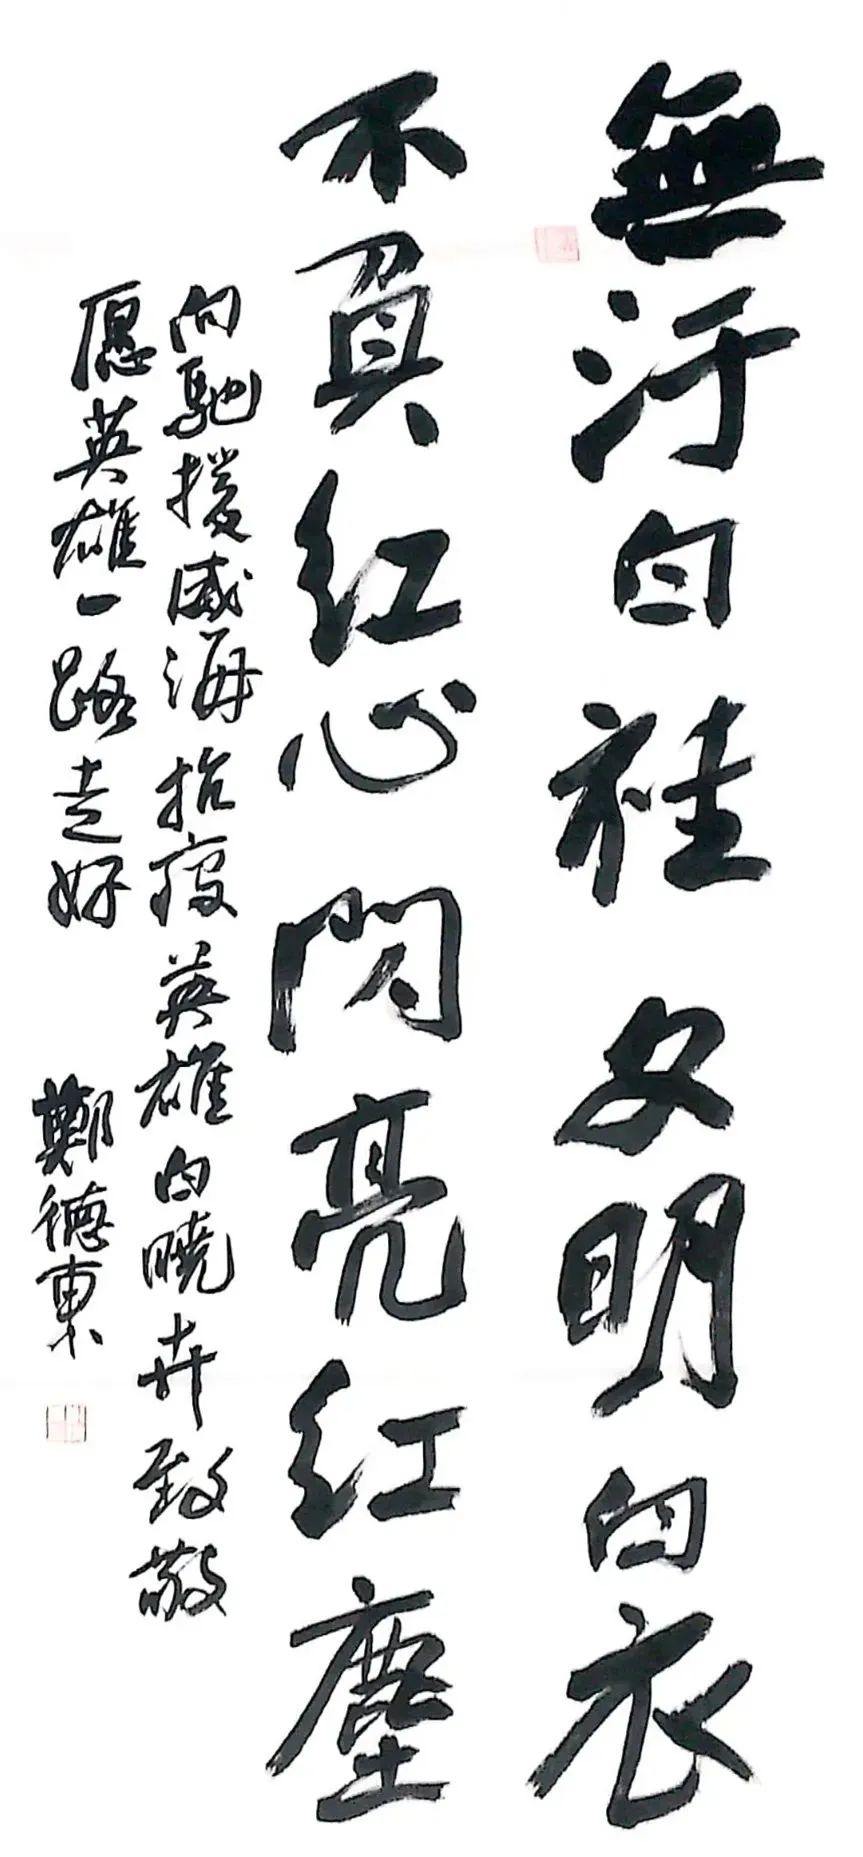 無汙白褂文明白衣
不負红心閃亮红塵
向馳援威海抗疫英雄白曉卉致敬
愿英雄一路走好
鄭德東